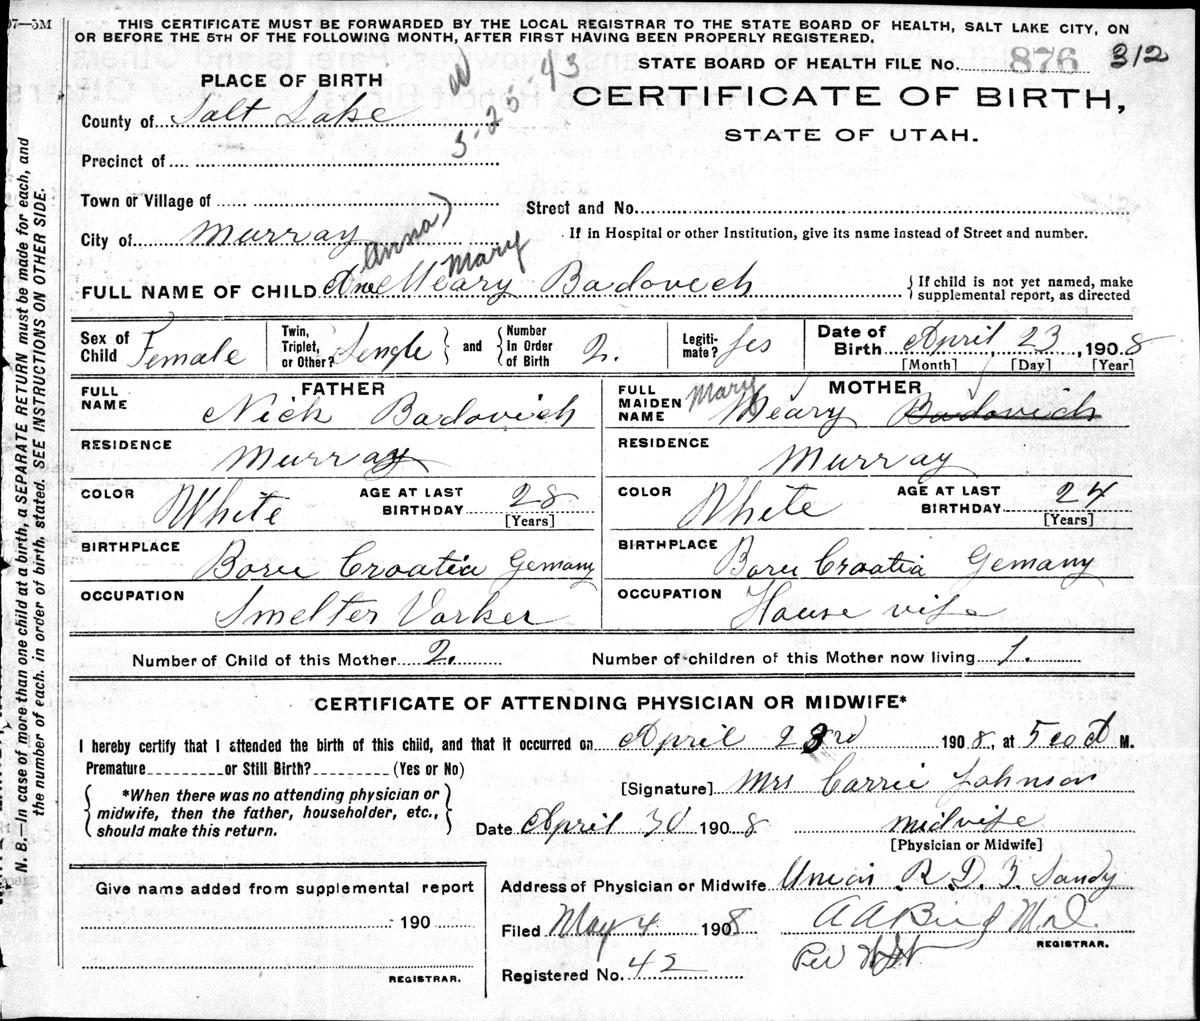 07—5M
THIS CERTIFICATE MUST BE FORWARDED BY THE LOCAL REGISTRAR TO THE STATE BOARD OF HEALTH, SALT LAKE CITY, ON
OR BEFORE THE 5TH OF THE FOLLOWING MONTH, AFTER FIRST HAVING BEEN PROPERLY REGISTERED.
PLACE OF BIRTH
5-25-43
County of Salt Lake
Precinct of
Town or Village of
City of Murray
STATE BOARD OF HEALTH FILE No. 876 312
CERTIFICATE OF BIRTH,
STATE OF UTAH.
Street and No.
If in Hospital or other Institution, give its name instead of Street and number.
Anna Mary
FULL NAME OF CHILD Ana Meary Badovich
If child is not yet named, make
supplemental report, as directed
Sex of Child Female
Twin, Triplet, or Other? Single and Number In Order of Birth 2.
Legitimate? Yes
Date of Birth April 23, 1908
[Month] [Day] [Year]
FATHER
FULL NAME Nick Badovich
RESIDENCE Murray
COLOR White AGE AT LAST BIRTHDAY 28
[Years]
BIRTHPLACE Croatia Gemany
OCCUPATION Smelter Vorker
MOTHER
FULL MAIDEN NAME Mary Meary Badovich
RESIDENCE Murray
COLOR White AGE AT LAST BIRTHDAY 24
[Years]
BIRTHPLACE Croatia Gemany
OCCUPATION House vife
Number of Child of this Mother 2. Number of children of this Mother now living 1.
CERTIFICATE OF ATTENDING PHYSICIAN OR MIDWIFE*
I hereby certify that I attended the birth of this child, and that it occurred on April 23rd 1908, at 5 M.
Premature or Still Birth? (Yes or No)
*When there was no attending physician or
midwife, then the father, householder, etc.,
should make this return.
[Signature] Mrs Carrie Johnson
Date April 30 1908 midvife
[Physician or Midwife]
Give name added from supplemental report
190
REGISTRAR.
Address of Physician or Midwife Union R.D. Sandy
Filed May 4 1908
REGISTRAR.
Registered No. 42
Per
N. B.—In case of more than one child at a birth, a SEPARATE RETURN must be made for each, and
the number of each. in order of birth, stated. SEE INSTRUCTIONS ON OTHER SIDE.